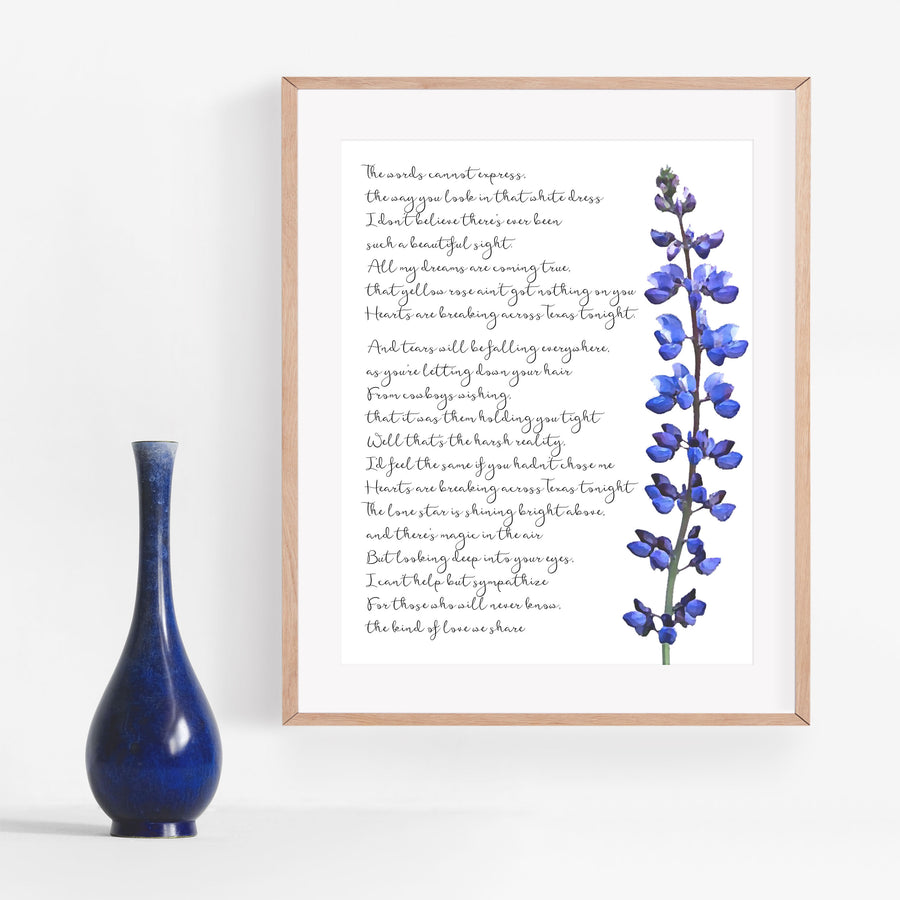 The words cannot express,
the way you look in that white dress
I don't believe there's ever been
such a beautiful sight.
All my dreams are coming true,
that yellow rose ain't got nothing on you
Hearts are breaking across Texas tonight.
And tears will be falling everywhere,
as you're letting down your hair
From cowboys wishing,
that it was them holding you tight
Well that's the harsh reality,
I'd feel the same if you hadn't chose me
Hearts are breaking across Texas tonight
The lone star is shining bright above,
and there's magic in the air
But looking deep into your eyes,
I can't help but sympathize
For those who will never know,
the kind of love we share